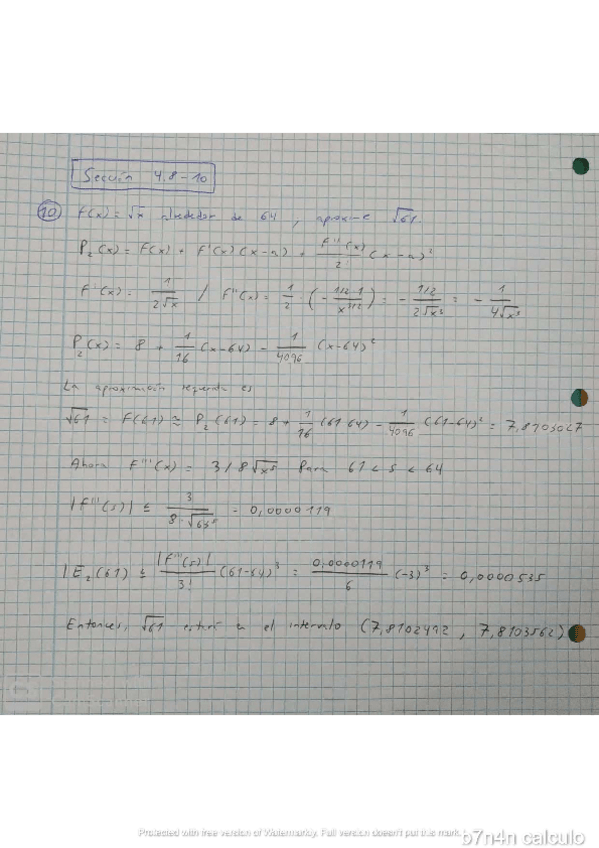 Sección 4.8-10
10 F(x) = √x alrededor de 64, aproxime √61.
P₂(x) = F(x) + F'(x)(x-a) + F''(x)/2! (x-a)²
F'(x) = 1/(2√x) / F''(x) = 1/2 · (- 1/2·1/x^3/2) = - 1/2/(2√x³) = - 1/(4√x³)
P₂(x) = 8 + 1/16 (x-64) - 1/4096 (x-64)²
La aproximación requerida es
√61 = F(61) ≅ P₂(61) = 8 + 1/16 (61-64) - 1/4096 (61-64)² = 7,8103027
Ahora F'''(x) = 3/8√x⁵ Para 61 < s < 64
|F'''(s)| ≤ 3/(8·√61⁵) = 0,0000119
|E₂(61)| ≤ |F'''(s)|/3! (61-64)³ = 0,0000119/6 (-3)³ = 0,0000535
Entonces, √61 estará en el intervalo (7,8102492, 7,8103562)
Protected with free version of Watermarkly. Full version doesn't put this mark.
b7n4n calculo